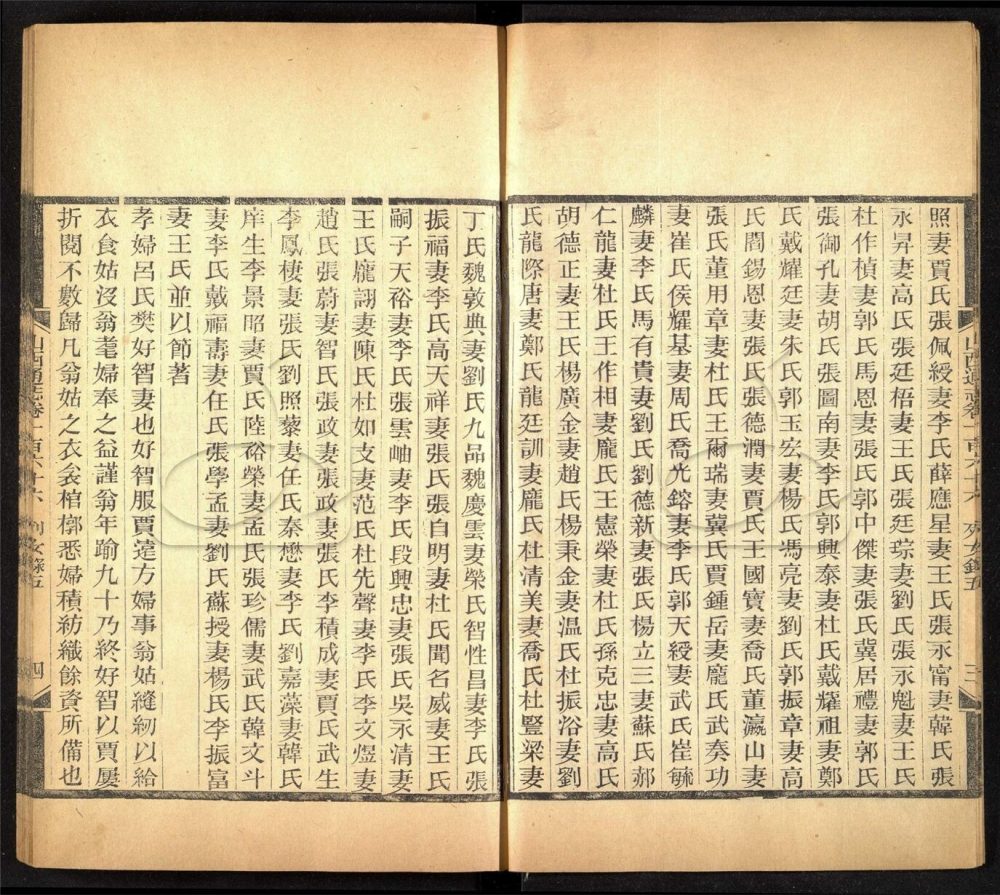 山西通志卷一百六十六 列女錄五 三
照妻賈氏張佩綬妻李氏薛應星妻王氏張永甯妻韓氏張
永昇妻高氏張廷梧妻王氏張廷琮妻劉氏張永魁妻王氏
杜作楨妻郭氏馬恩妻張氏郭中傑妻張氏冀居禮妻郭氏
張御孔妻胡氏張圖南妻李氏郭興泰妻杜氏戴耀祖妻鄭
氏戴耀廷妻朱氏郭玉宏妻楊氏馮亮妻劉氏郭振章妻高
氏閻錫恩妻張氏張德潤妻賈氏王國寶妻喬氏董瀛山妻
張氏董用章妻杜氏王爾瑞妻冀氏賈鍾岳妻龐氏武奏功
妻崔氏侯耀基妻周氏喬光鎔妻李氏郭天綬妻武氏崔毓
麟妻李氏馬有貴妻劉氏劉德新妻張氏楊立三妻蘇氏郝
仁龍妻杜氏王作相妻龐氏王憲榮妻杜氏孫克忠妻高氏
胡德正妻王氏楊廣金妻趙氏楊秉金妻溫氏杜振浴妻劉
氏龍際唐妻鄭氏龍廷訓妻龐氏杜清美妻喬氏杜豎梁妻
丁氏魏敦典妻劉氏九品魏慶雲妻榮氏智性昌妻李氏張
振福妻李氏高天祥妻張氏張自明妻杜氏聞名威妻王氏
嗣子天裕妻李氏張雲岫妻李氏段興忠妻張氏吳永清妻
王氏龐詡妻陳氏杜如支妻范氏杜先聲妻李氏李文煜妻
趙氏張蔚妻智氏張政妻張政妻張氏李積成妻賈氏武生
李鳳棲妻張氏劉照藜妻任氏秦懋妻李氏劉嘉藻妻韓氏
庠生李景昭妻賈氏陸裕榮妻孟氏張珍儒妻武氏韓文斗
妻李氏戴福壽妻任氏張學孟妻劉氏蘇授妻楊氏李振富
妻王氏並以節著
孝婦呂氏樊好智妻也好智服賈遠方婦事翁姑縫紉以給
衣食姑沒翁耄婦奉之益謹翁年踰九十乃終好智以賈屢
折閱不數歸凡翁姑之衣衾棺槨悉婦積紡織餘資所備也
山西通志卷一百六十六 列女錄五 四